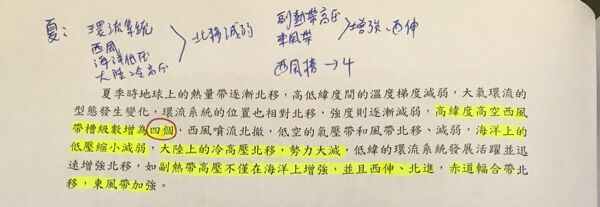 夏： 環流系統
西風
海洋低压
大陸冷高压
北移減弱
副熱帶高压
東風帶
增強、西伸
西風槽→4
夏季時地球上的熱量帶逐漸北移，高低緯度間的溫度梯度減弱，大氣環流的
型態發生變化，環流系統的位置也相對北移，強度則逐漸減弱。高緯度高空西風
帶槽級數增為四個，西風噴流北撤，低空的氣壓帶和風帶北移、減弱，海洋上的
低壓縮小減弱，大陸上的冷高壓北移，勢力大減，低緯的環流系統發展活躍並迅
速增強北移，如副熱帶高壓不僅在海洋上增強，並且西伸、北進，赤道輻合帶北
移，東風帶加強。